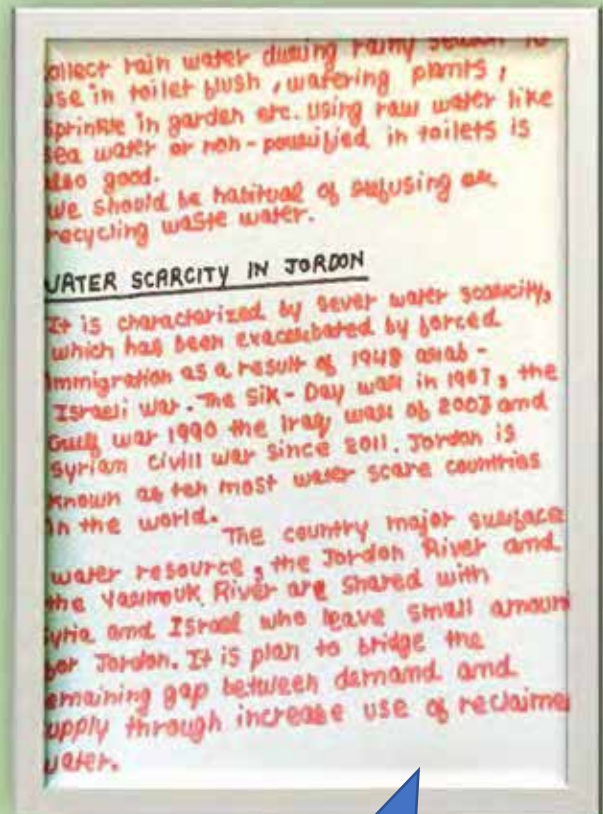 ollect rain water during rainy season to
use in toilet flush , watering plants ,
sprinkle in garden etc. using raw water like
sea water or non - pourified in toilets is
also good.
We should be habitual of refusing or
recycling waste water.
WATER SCARCITY IN JORDON
It is characterized by sever water scarcity,
which has been exacerbated by forced
immigration as a result of 1948 arab -
Israeli war. The Sik - Day war in 1967, the
Gulf war 1990 the Iraq war of 2003 and
Syrian Civill war since 2011. Jordon is
known as ten most water scare countries
in the world.
The country major surface
water resource, the Jordon River and
the Yasmouk River are shared with
Syria and Israel who leave small amoun
for Jordon. It is plan to bridge the
emaining gap between demand and
upply through increase use of reclaime
water.